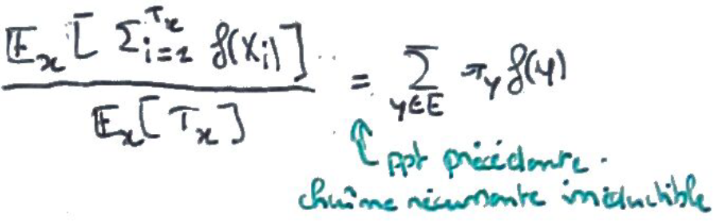 𝔼_x [ Σ_{i=1}^{T_x} f(X_i) ] / 𝔼_x [ T_x ] = Σ_{y∈E} π_y f(y)
ppt précédente.
chaîne récurrente irréductible